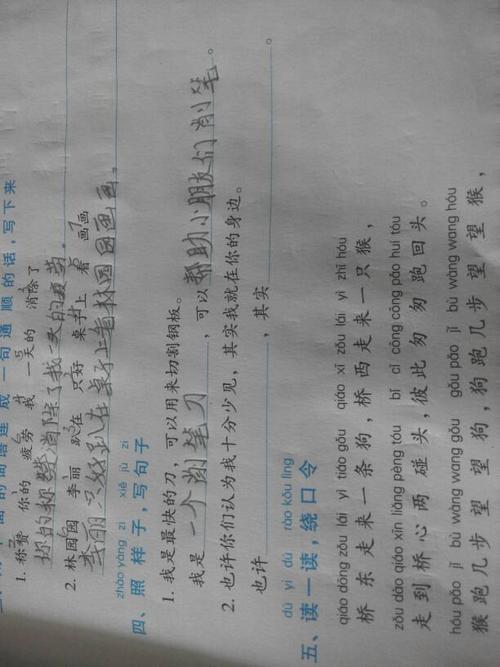 面 的 词 语 连 成 一 句 通 顺 的 话 ，写 下 来
1. 称赞 你的 疲劳 我 一天的 消除了
你的称赞消除了我一天的疲劳。
2. 林园园 李丽 趴在 只好 桌子上 看 画画
李丽只好趴在桌子上看林园园画画。
zhào yàng zi xiě jù zi
四、照 样 子 ，写 句 子
1. 我是最快的刀，可以用来切割钢板。
我是一个削笔刀，可以帮助小朋友们削笔。
2. 也许你们认为我十分少见，其实我就在你的身边。
也许，其实。
dú yì dú rào kǒu lìng
五、读 一 读 ，绕 口 令
qiáo dōng zǒu lái yì tiáo gǒu qiáo xī zǒu lái yì zhī hóu
桥 东 走 来 一 条 狗，桥 西 走 来 一 只 猴，
zǒu dào qiáo xīn liǎng pèng tóu bǐ cǐ cōng cōng pǎo huí tóu
走 到 桥 心 两 碰 头，彼 此 匆 匆 跑 回 头。
hóu pǎo jǐ bù wàng wang gǒu gǒu pǎo jǐ bù wàng wang hóu
猴 跑 几 步 望 望 狗，狗 跑 几 步 望 望 猴，